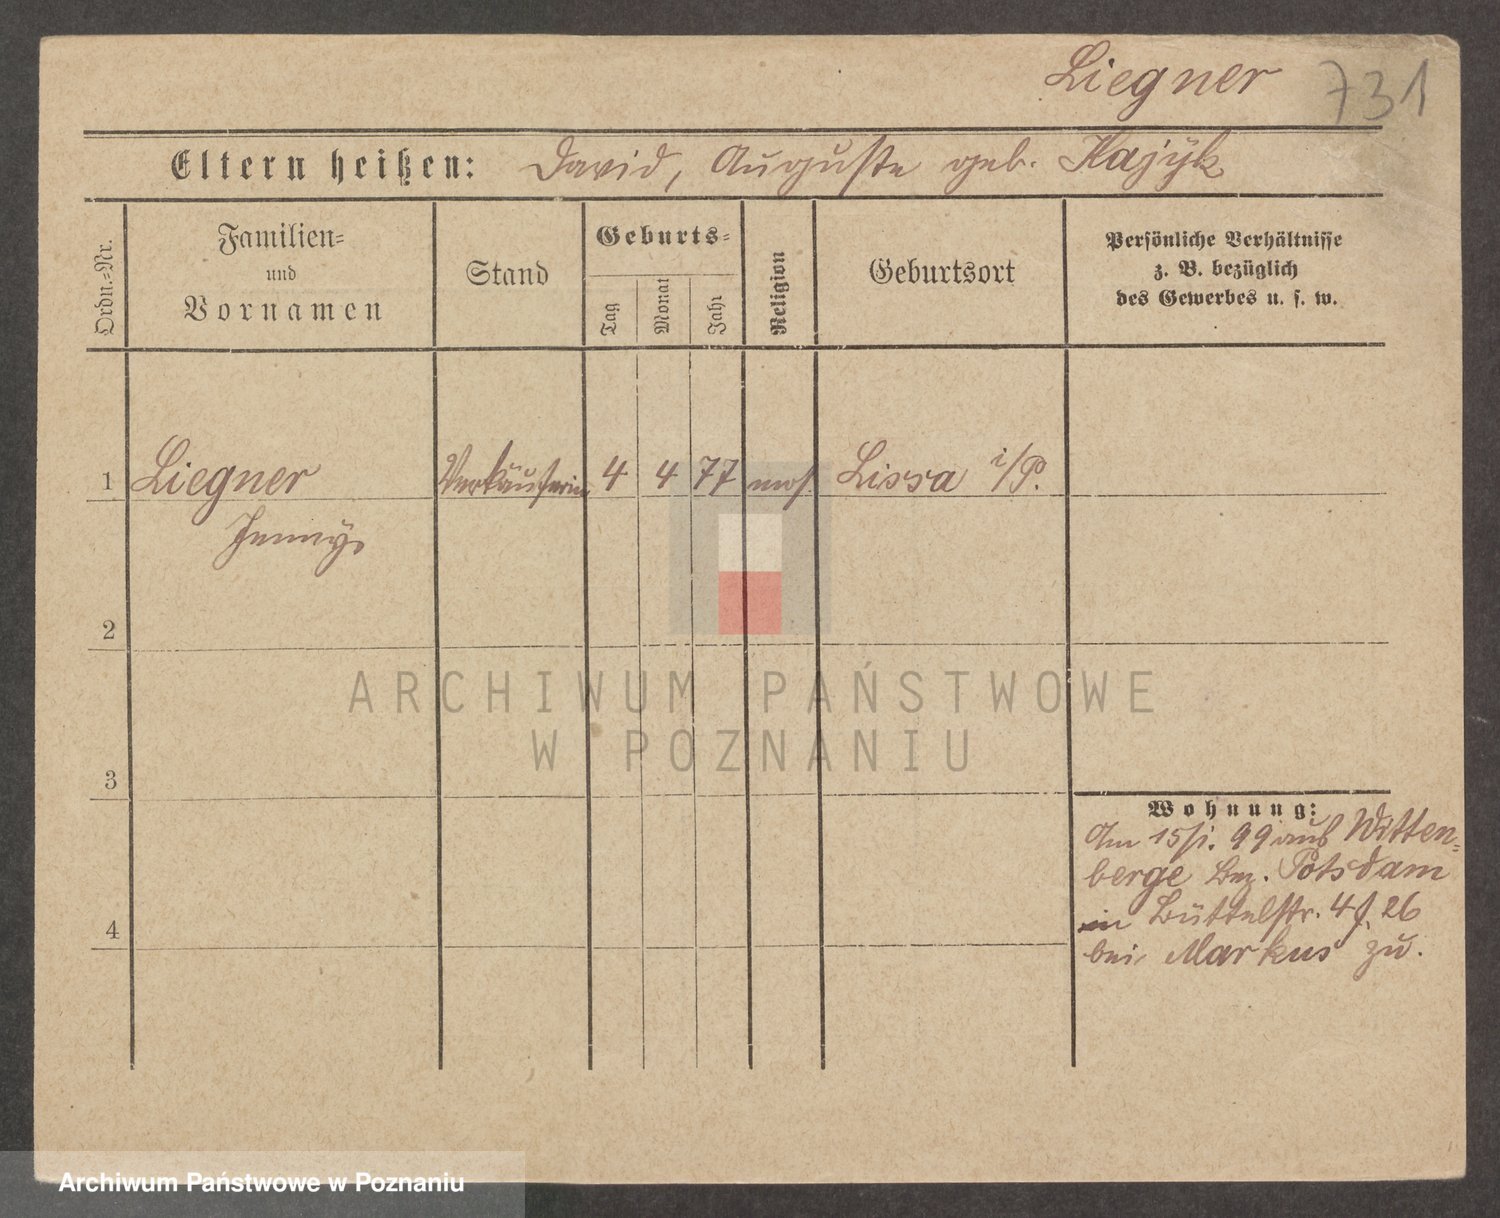 Liegner 731
Eltern heißen: David, Auguste geb. Kajyk
Ordn.-Nr.
Familien-
und
Vornamen
Stand
Geburts-
Tag
Monat
Jahr
Religion
Geburtsort
Persönliche Verhältnisse
z. B. bezüglich
des Gewerbes u. s. w.
1 Liegner Verkäuferin 4 4 77 mos Lissa i/P.
Jenny
2
3
4
ARCHIWUM PAŃSTWOWE
W POZNANIU
Wohnung:
Am 15/ 99 aus Witten-
berge Bez. Potsdam
in Büttelstr. 4 26
bei Markus zu.
Archiwum Państwowe w Poznaniu